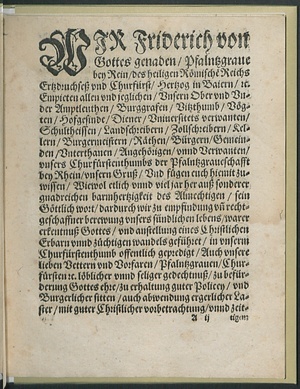 WIR Friderich von
Gottes genaden / Pfaltzgraue
bey Rein / des heiligen Römischē Reichs
Ertzdruchseß vnd Churfürst / Hertzog in Baiern / rc.
Empieten allen vnd jeglichen / Vnsern Ober vnd Vn-
der Amptleuthen / Burggrafen / Vitzthumb / Vög-
ten / Hofgesinde / Diener / Vniuersitets verwanten /
Schultheissen / Landschreibern / Zollschreibern / Kel-
lern / Burgermeistern / Räthen / Bürgern / Gemein-
den / Vnterthanen / Angehörigen / vnnd Verwanten /
vnsers Churfürstenthumbs der Pfaltzgraueschafft
bey Rhein / vnsern Gruß / Vnd fügen euch hiemit zu-
wissen / Wiewol etlich vnnd viel jar her auß sonderer
gnadreichen barmhertzigkeit des Almechtigen / sein
Göttlich wort / dardurch wir zu empfindung vñ recht-
geschaffner berewung vnsers sündlichen lebens / warer
erkentnuß Gottes / vnd anstellung eines Christlichen
Erbarn vnnd züchtigen wandels geführt / in vnserm
Churfürstenthumb offentlich gepredigt / Auch vnsere
lieben Vettern vnd Vorfaren / Pfaltzgrauen / Chur-
fürsten rc. löblicher vnnd seliger gedechtnuß / zu befür-
derung Gottes ehr / zu erhaltung guter Policey / vnd
Burgerlicher sitten / auch abwendung ergerlicher La-
ster / mit guter Christlicher vorbetrachtung / vnnd zeit-
A ij tigem